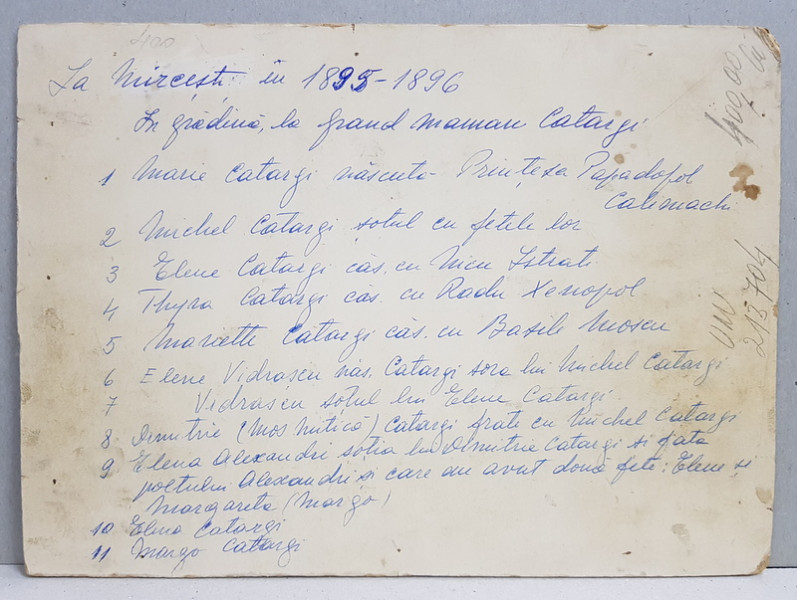 400
La Mircești în 1895-1896
În grădină, la grand maman Catargi
1 Marie Catargi născută Prințesa Papadopol
Calimachi
2 Michel Catargi soțul cu fetele lor
3 Elene Catargi căs. cu Nicu Istrati
4 Thyra Catargi căs. cu Radu Xenopol
5 Mariette Catargi căs. cu Basile Moscu
6 Elene Vidrascu năs. Catargi sora lui Michel Catargi
7 Vidrascu soțul lui Elene Catargi.
8 Dimitrie (Moș Mitică) Catargi frate cu Michel Catargi
9 Elena Alexandri soția lui Dimitrie Catargi și fata
poetului Alexandri și care au avut două fete: Elene și
Margareta (Margo)
10 Elena Catargi
11 Margo Catargi
218704